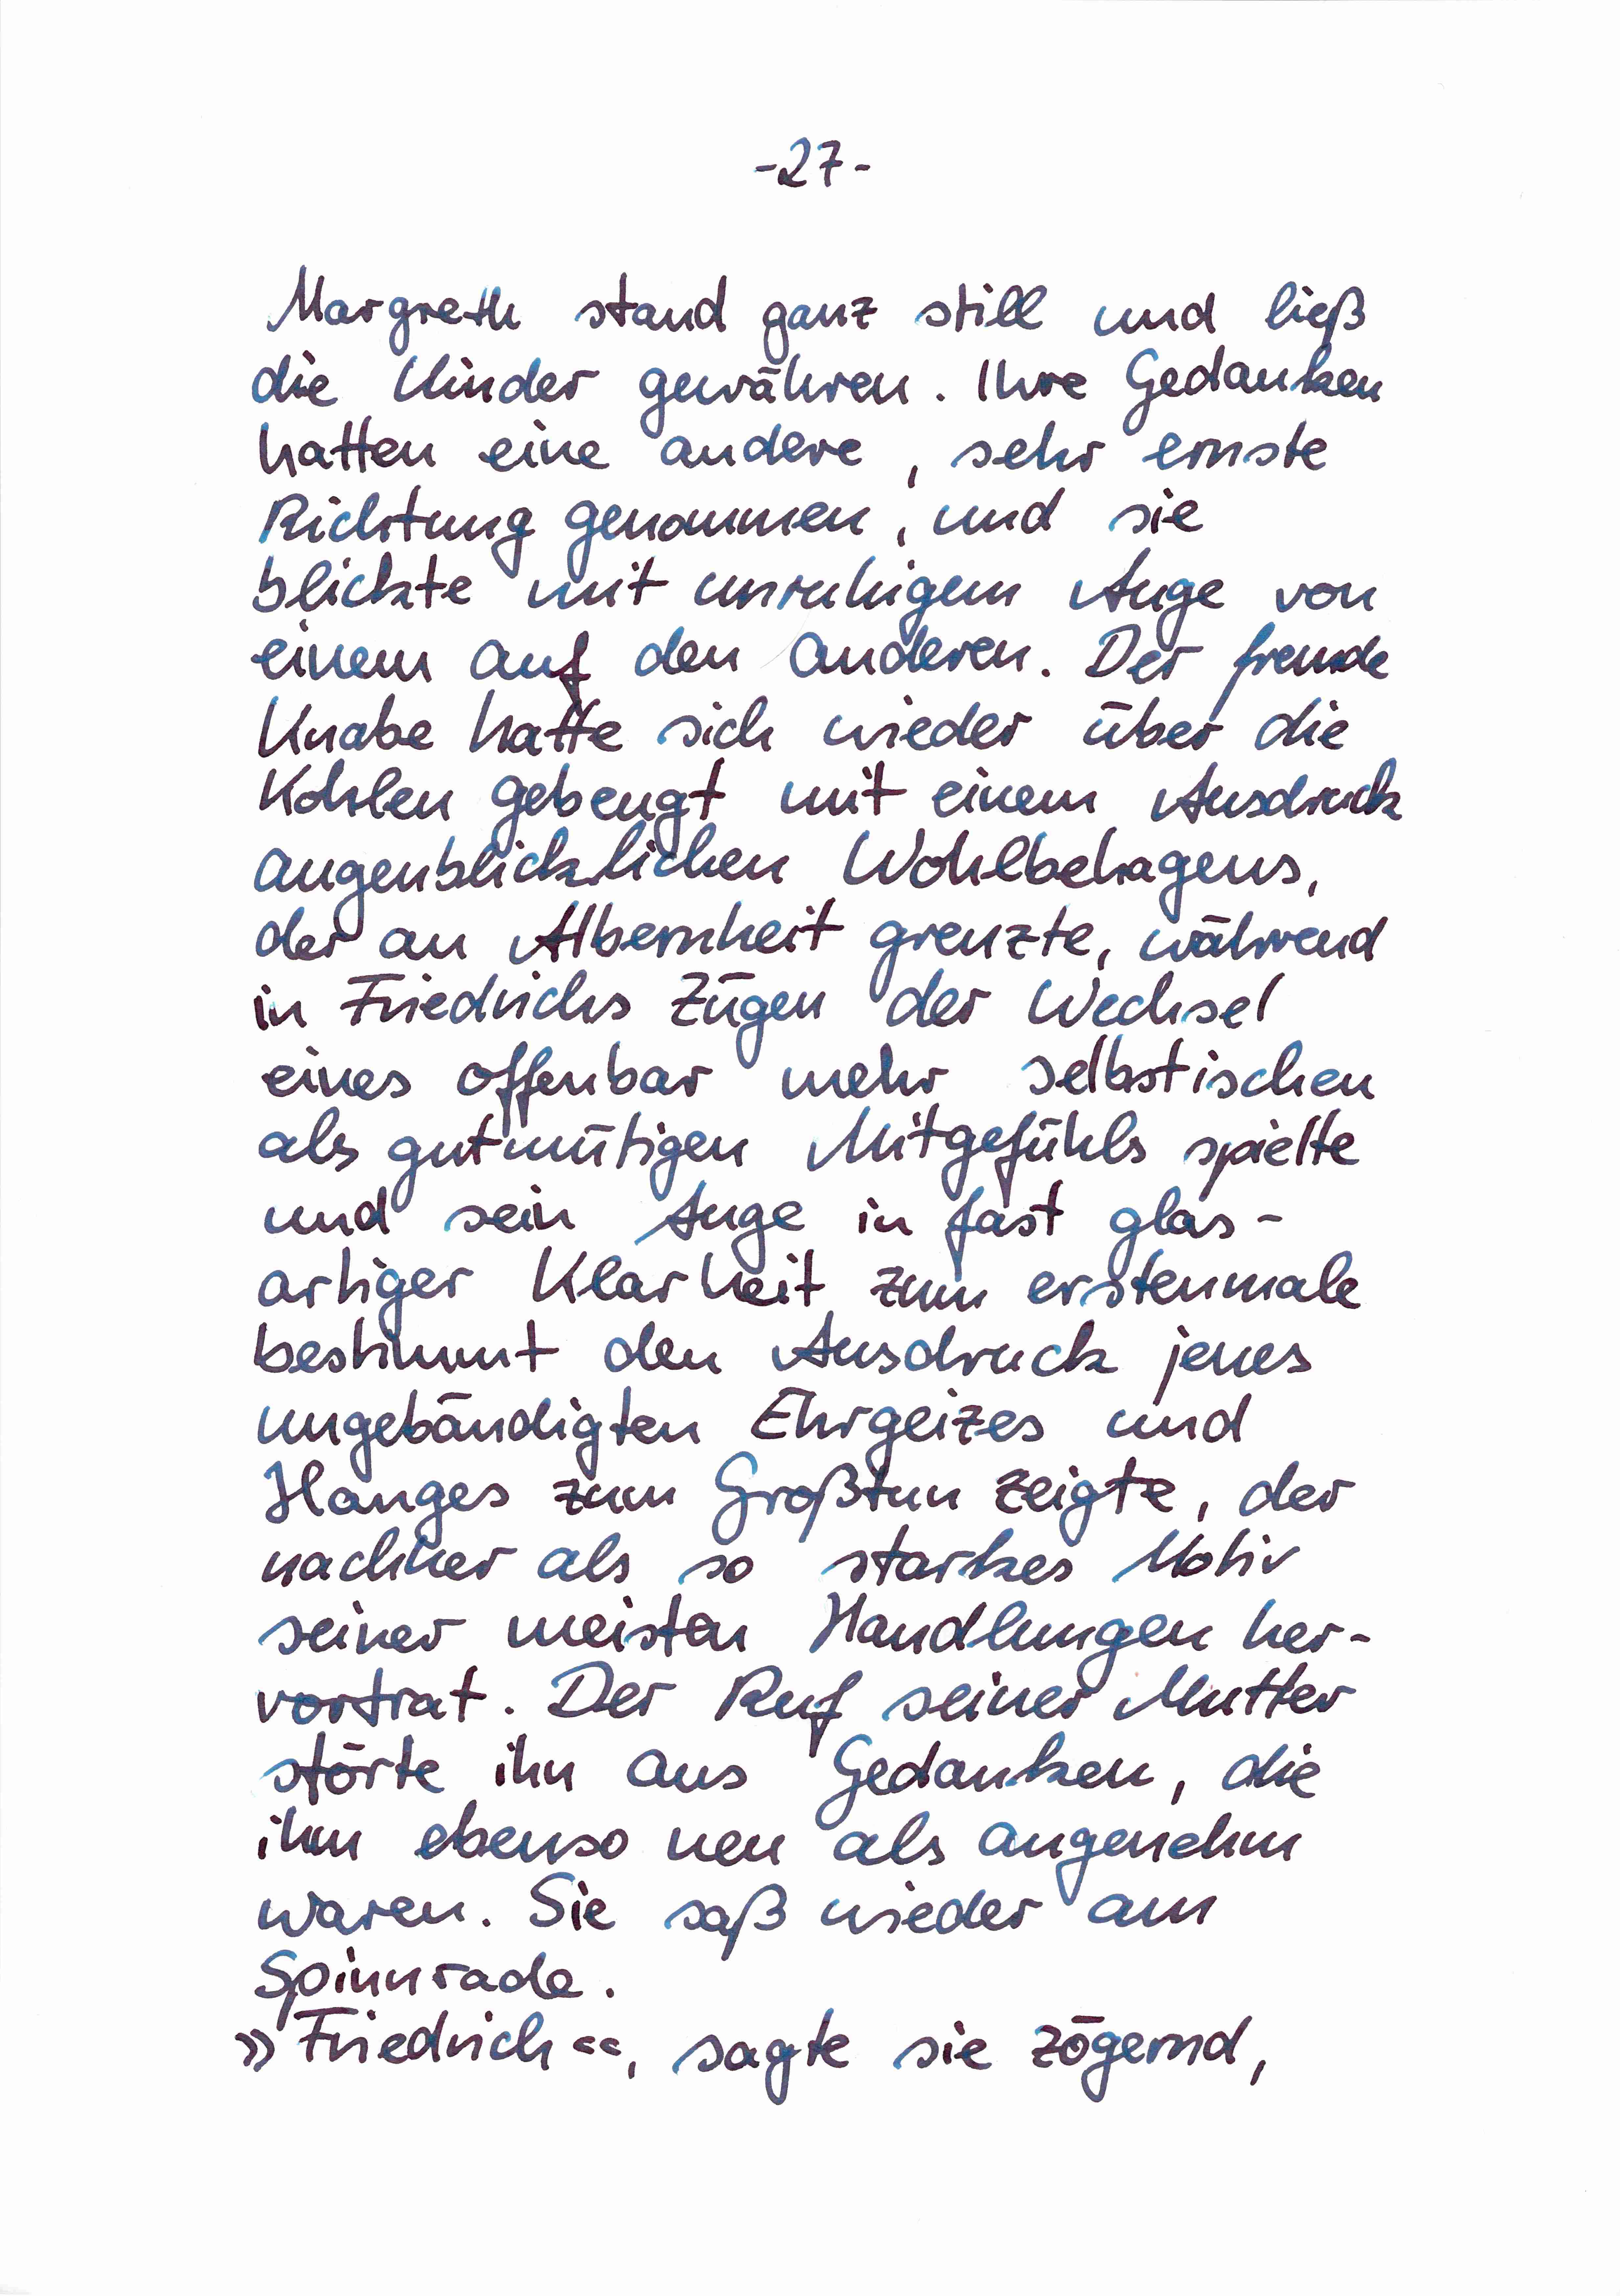 -27-
Margreth stand ganz still und ließ
die Kinder gewähren. Ihre Gedanken
hatten eine andere, sehr ernste
Richtung genommen, und sie
blickte mit unruhigem Auge von
einem auf den anderen. Der fremde
Knabe hatte sich wieder über die
Kohlen gebeugt mit einem Ausdruck
augenblicklichen Wohlbehagens,
der an Albernheit grenzte, während
in Friedrichs Zügen der Wechsel
eines offenbar mehr selbstischen
als gutmütigen Mitgefühls spielte
und sein Auge in fast glas-
artiger Klarheit zum erstenmale
bestimmt den Ausdruck jenes
ungebändigten Ehrgeizes und
Hanges zum Großtun zeigte, der
nachher als so starkes Motiv
seiner meisten Handlungen her-
vortrat. Der Ruf seiner Mutter
störte ihn aus Gedanken, die
ihm ebenso neu als angenehm
waren. Sie saß wieder am
Spinnrade.
»Friedrich«, sagte sie zögernd,